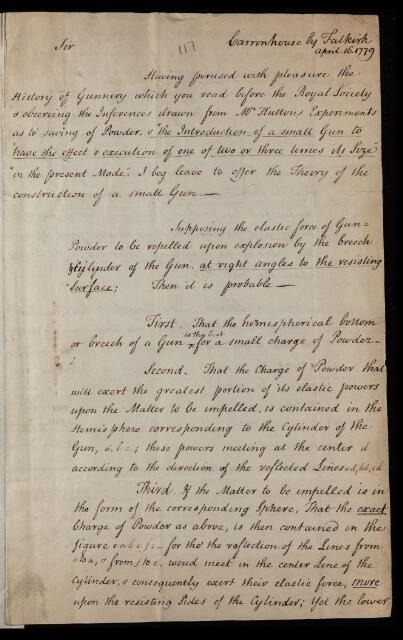 Sir
117
Carronhouse by Falkirk
April. 16. 1779
Having perused with pleasure the
History of Gunnery which you read before the Royal Society
& observing the Inferences drawn from Mr. Huttons Experiments
as to saving of Powder, & the Introduction of a small Gun to
"have the effect & execution of one of two or three times its Size"
"in the present Mode": I beg leave to offer the Theory of the
construction of a small Gun. —
Supposing the elastic force of Gun=
Powder to be repelled upon explosion by the breech
& cylinder of the Gun, at right angles to the resisting
surface; Then it is probable —
First. That the hemispherical bottom
is the best
or breech of a Gun ^ for a small charge of Powder —
Second. That the Charge of Powder that
will exert the greatest portion of its elastic powers
upon the Matter to be impelled, is contained in the
Hemisphere corresponding to the Cylinder of the
Gun, a.b.c.; these powers meeting at the center d
according to the direction of the reflected Lines ad, bd, cd
Third. If the Matter to be impelled is in
the form of the corresponding Sphere, That the exact
Charge of Powder as above, is then contained in the
figure e a b c f: — for tho' the reflection of the Lines from
e to a, & from f to c, woud meet in the center Line of the
Cylinder, & consequently exert their elastic force, more
upon the resisting Sides of the Cylinder; Yet the lower